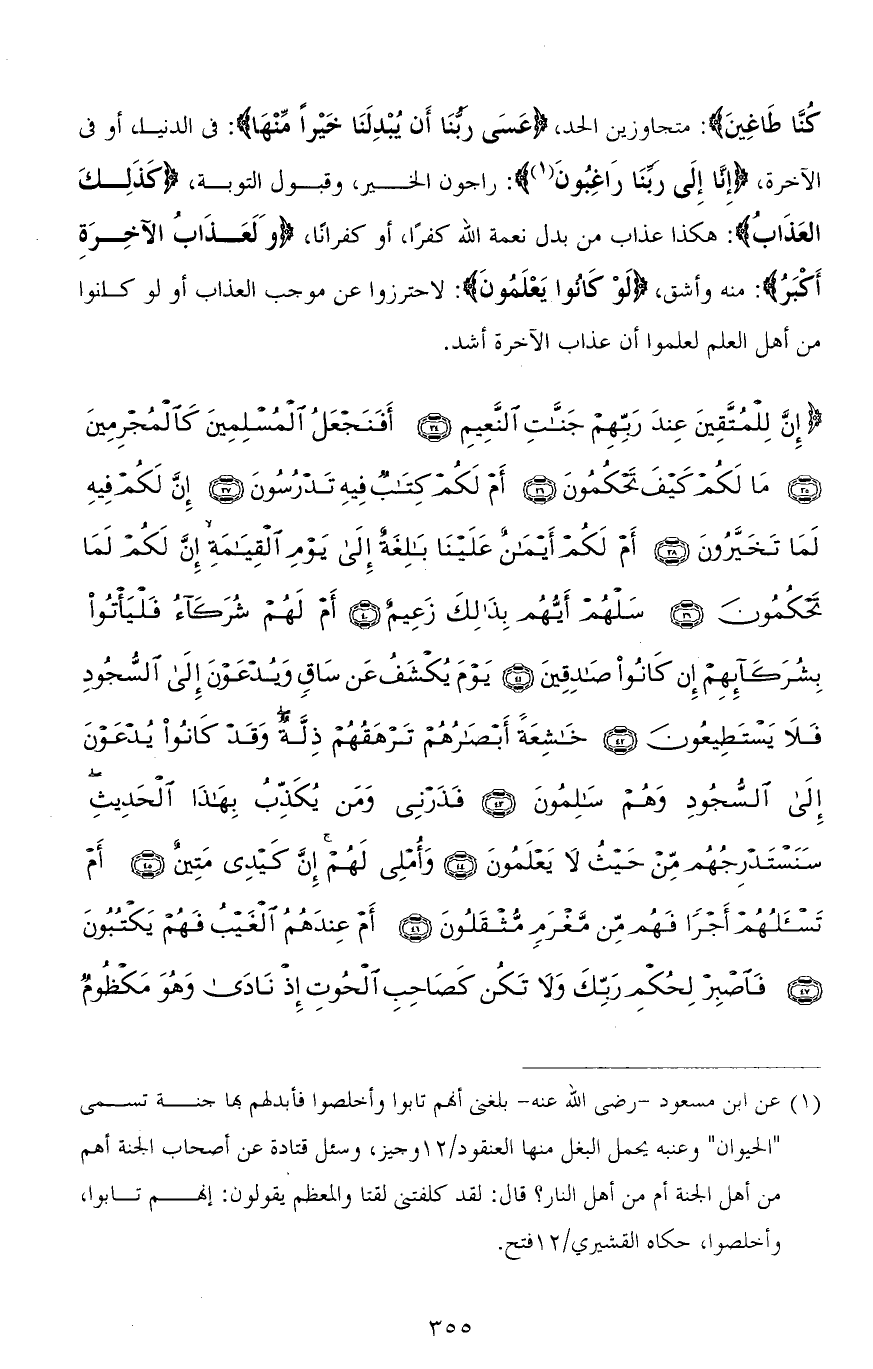 كُنَّا طَاغِينَ﴾: متجاوزين الحد، ﴿عَسَى رَبُّنَا أَن يُبْدِلَنَا خَيْراً مِّنْهَا﴾: فى الدنيا، أو فى
الآخرة، ﴿إِنَّا إِلَى رَبِّنَا رَاغِبُونَ(١)﴾: راجون الخير، وقبول التوبة، ﴿كَذَلِكَ
العَذَابُ﴾: هكذا عذاب من بدل نعمة الله كفرًا، أو كفرانًا، ﴿وَلَعَذَابُ الآخِرَةِ
أَكْبَرُ﴾: منه وأشق، ﴿لَوْ كَانُوا يَعْلَمُونَ﴾: لاحترزوا عن موجب العذاب أو لو كانوا
من أهل العلم لعلموا أن عذاب الآخرة أشد.
﴿إِنَّ لِلْمُتَّقِينَ عِندَ رَبِّهِمْ جَنَّٰتِ ٱلنَّعِيمِ ٣٤ أَفَنَجْعَلُ ٱلْمُسْلِمِينَ كَٱلْمُجْرِمِينَ
٣٥ مَا لَكُمْ كَيْفَ تَحْكُمُونَ ٣٦ أَمْ لَكُمْ كِتَٰبٌ فِيهِ تَدْرُسُونَ ٣٧ إِنَّ لَكُمْ فِيهِ
لَمَا تَخَيَّرُونَ ٣٨ أَمْ لَكُمْ أَيْمَٰنٌ عَلَيْنَا بَٰلِغَةٌ إِلَىٰ يَوْمِ ٱلْقِيَٰمَةِ ۙ إِنَّ لَكُمْ لَمَا
تَحْكُمُونَ ٣٩ سَلْهُمْ أَيُّهُم بِذَٰلِكَ زَعِيمٌ ٤٠ أَمْ لَهُمْ شُرَكَآءُ فَلْيَأْتُوا۟
بِشُرَكَآئِهِمْ إِن كَانُوا۟ صَٰدِقِينَ ٤١ يَوْمَ يُكْشَفُ عَن سَاقٍ وَيُدْعَوْنَ إِلَى ٱلسُّجُودِ
فَلَا يَسْتَطِيعُونَ ٤٢ خَٰشِعَةً أَبْصَٰرُهُمْ تَرْهَقُهُمْ ذِلَّةٌ ۖ وَقَدْ كَانُوا۟ يُدْعَوْنَ
إِلَى ٱلسُّجُودِ وَهُمْ سَٰلِمُونَ ٤٣ فَذَرْنِى وَمَن يُكَذِّبُ بِهَٰذَا ٱلْحَدِيثِ ۖ
سَنَسْتَدْرِجُهُم مِّنْ حَيْثُ لَا يَعْلَمُونَ ٤٤ وَأُمْلِى لَهُمْ ۚ إِنَّ كَيْدِى مَتِينٌ ٤٥ أَمْ
تَسْـَٔلُهُمْ أَجْرًا فَهُم مِّن مَّغْرَمٍ مُّثْقَلُونَ ٤٦ أَمْ عِندَهُمُ ٱلْغَيْبُ فَهُمْ يَكْتُبُونَ
٤٧ فَٱصْبِرْ لِحُكْمِ رَبِّكَ وَلَا تَكُن كَصَاحِبِ ٱلْحُوتِ إِذْ نَادَىٰ وَهُوَ مَكْظُومٌ
(١) عن ابن مسعود -رضى الله عنه- بلغنى أنهم تابوا وأخلصوا فأبدلهم بها جنة تسمى
"الحيوان" وعنبه يحمل البغل منها العنقود/١٢وجيز، وسئل قتادة عن أصحاب الجنة أهم
من أهل الجنة أم من أهل النار؟ قال: لقد كلفتنى لقتا والمعظم يقولون: إنهم تابوا،
وأخلصوا، حكاه القشيري/١٢فتح.
٣٥٥